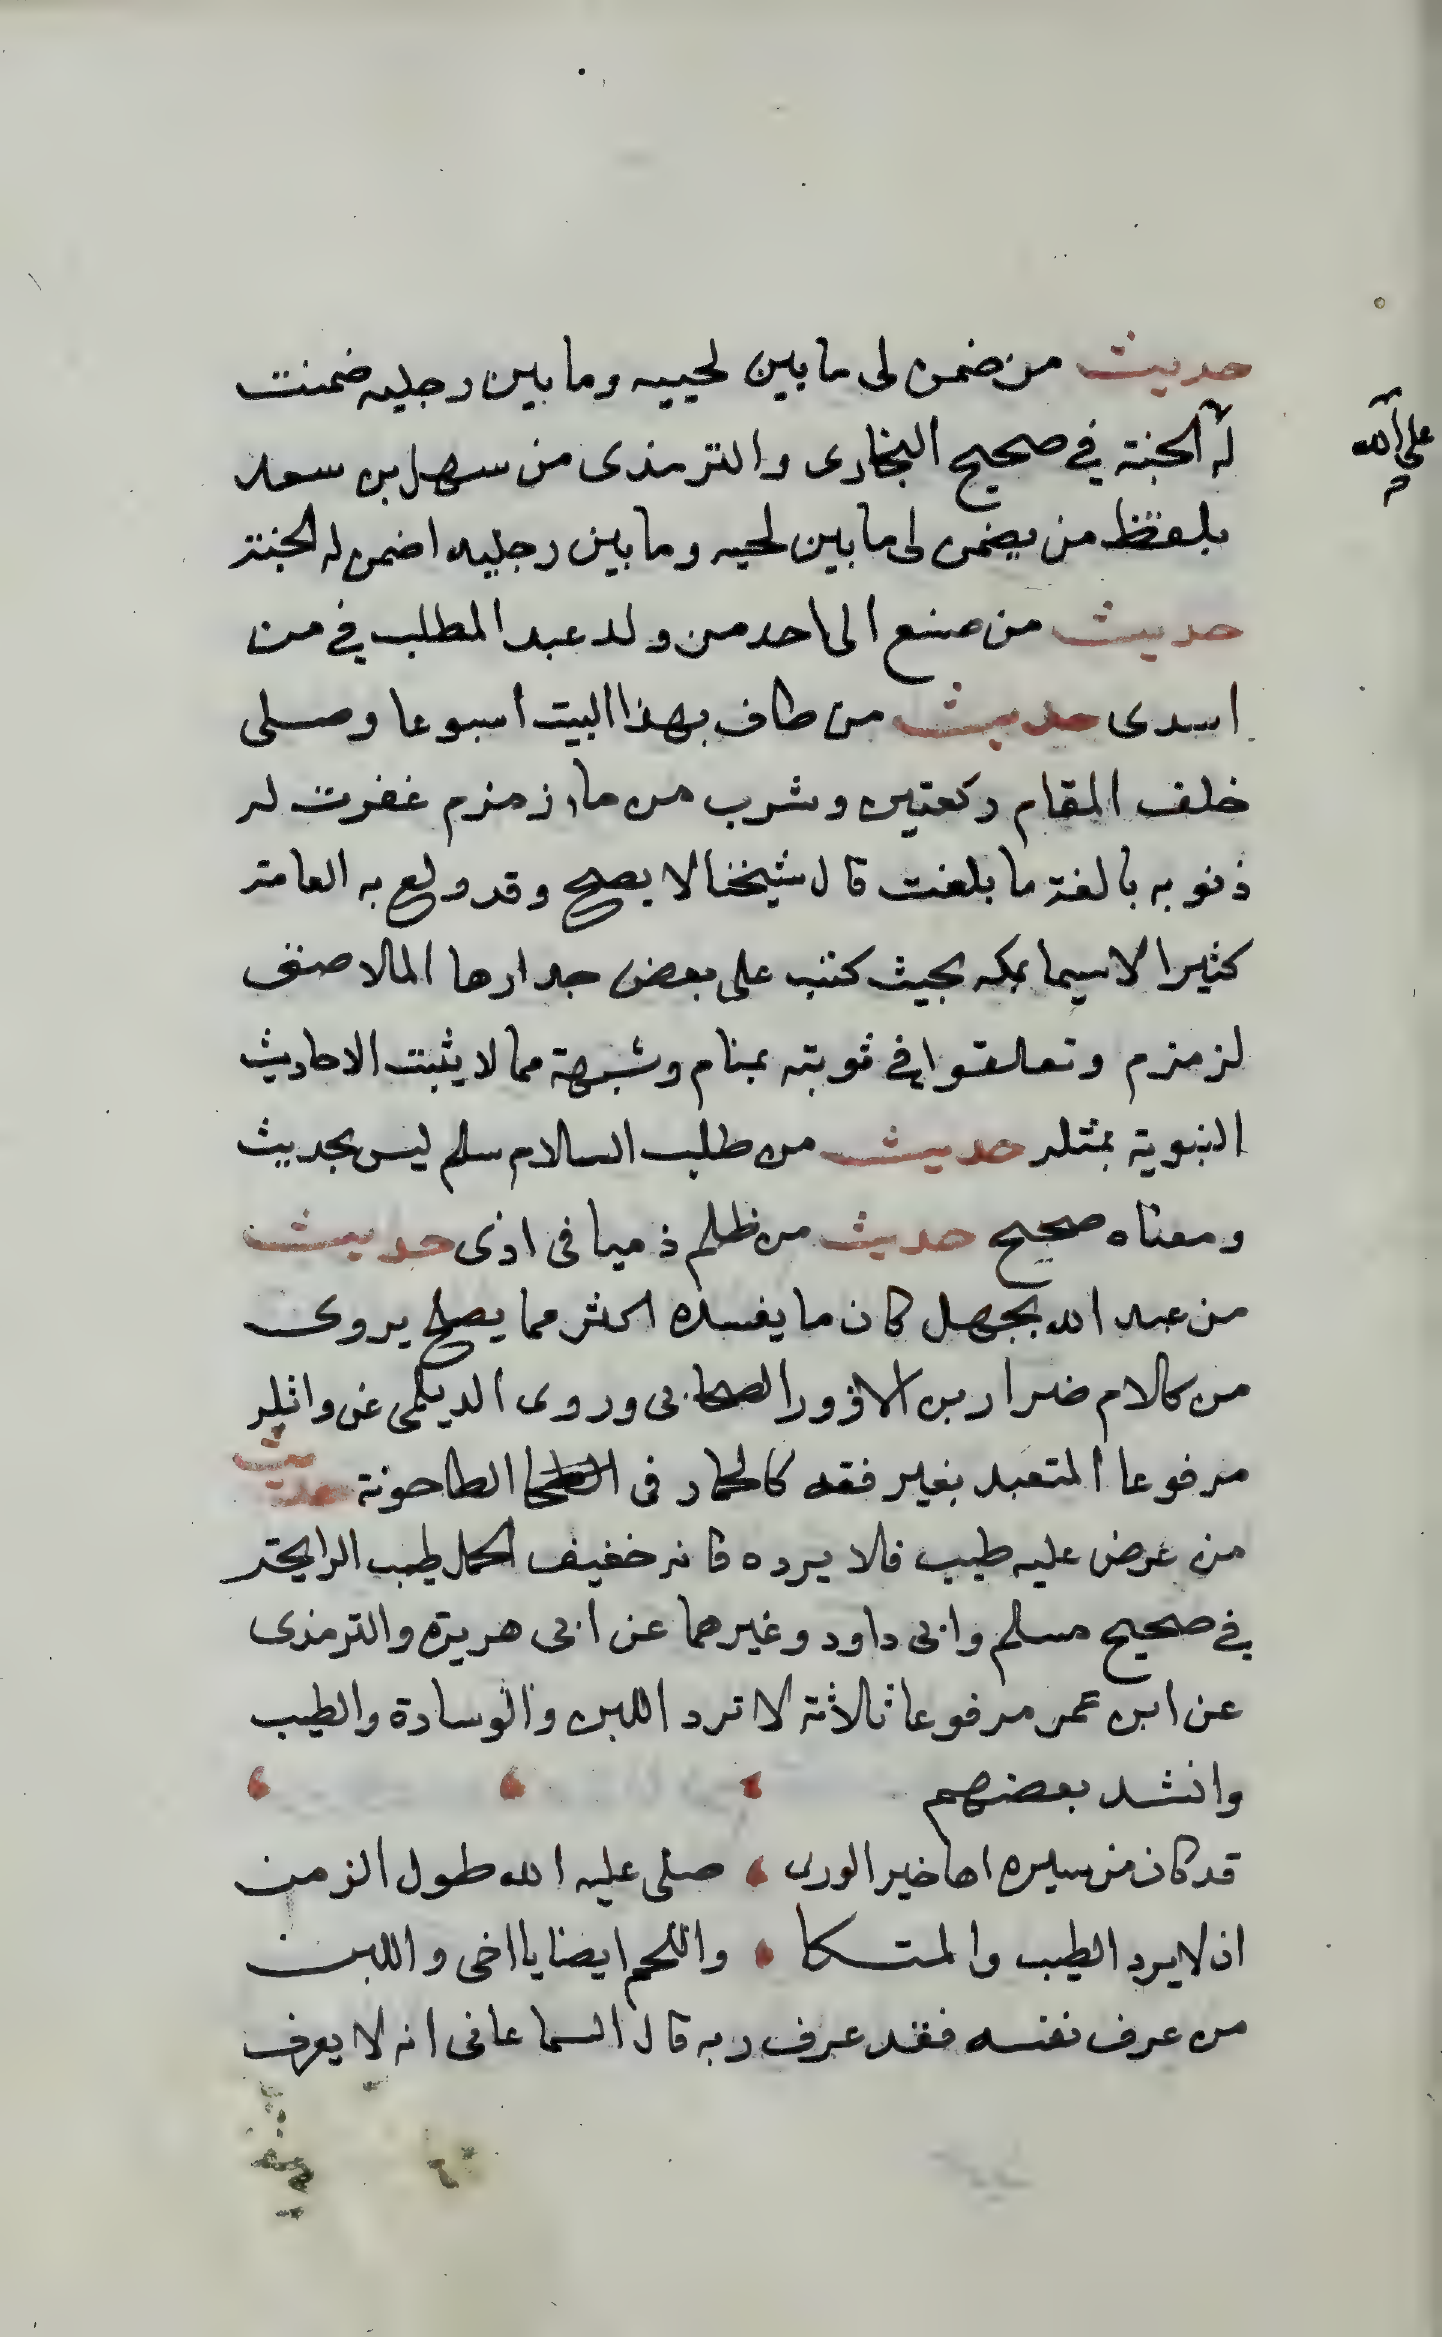 حديث من ضمن لى ما بين لحييه وما بين رجليه ضمنت
له الجنة في صحيح البخارى والترمذى من سهل بن سعد
على الله
بلفظ من يضمن لى ما بين لحيه وما بين رجليه اضمن له الجنة
حديث من صنع الى احد من ولد عبد المطلب في من
اسدى حديث من طاف بهذا البيت اسبوعا وصلى
خلف المقام ركعتين وشرب من ماء زمزم غفرت له
ذنوبه بالغة ما بلغت قال شيخنا لا يصح وقد ولع به العامة
كثيرا لاسيما بمكه بحيث كتب على بعض جدارها الملاصق
لزمزم وتعالقوا في ثوبته بمنام وشبهة مما لا يثبت الاحاديث
النبوية بمثله حديث من طلب السلام سلم ليس بحديث
ومعناه صحيح حديث من ظلم ذميا فى اذى حديث
من عبد الله بجهل كان ما يفسده اكثر مما يصلح يروى
من كلام ضرار بن الازور الصحابى وروى الديلمى عن واثلة
مرفوعا المتعبد بغير فقه كالحمار فى الطاحونة حديث
من عرض عليه طيب فلا يرده فانه خفيف الحمل طيب الرايحة
في صحيح مسلم وابى داود وغيرهما عن ابى هريرة والترمذى
عن ابن عمر مرفوعا ثلاثة لا ترد اللبن والوسادة والطيب
وانشد بعضهم
قد كان من سيره اها خير الورى صلى عليه الله طول الزمن
ان لا يرد الطيب والمتكا واللحم ايضا يا اخى واللبن
من عرف نفسه فقد عرف ربه قال السماعانى انه لا يعرف